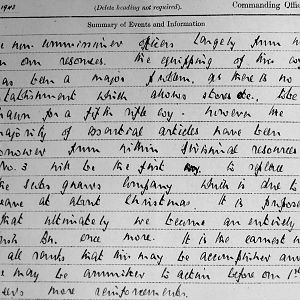 1943 (Delete heading not required). Commanding Offic
Summary of Events and Information
non commissioned officers largely from w
own resources. The equipping of this coy
as been a major problem, as there is no
establishment which allows stores etc. to be
drawn for a fifth rifle coy. however the
majority of essential articles have been
borrowed from within divisional resources
No. 3 will be the first to replace
the Scots Guards Company which is due to
leave at about Christmas. It is proposed
that ultimately we become an entirely
Bn. once more. It is the earnest h
all ranks that this may be accomplished an
we may be committed to action before our 1st
more reinforcements.